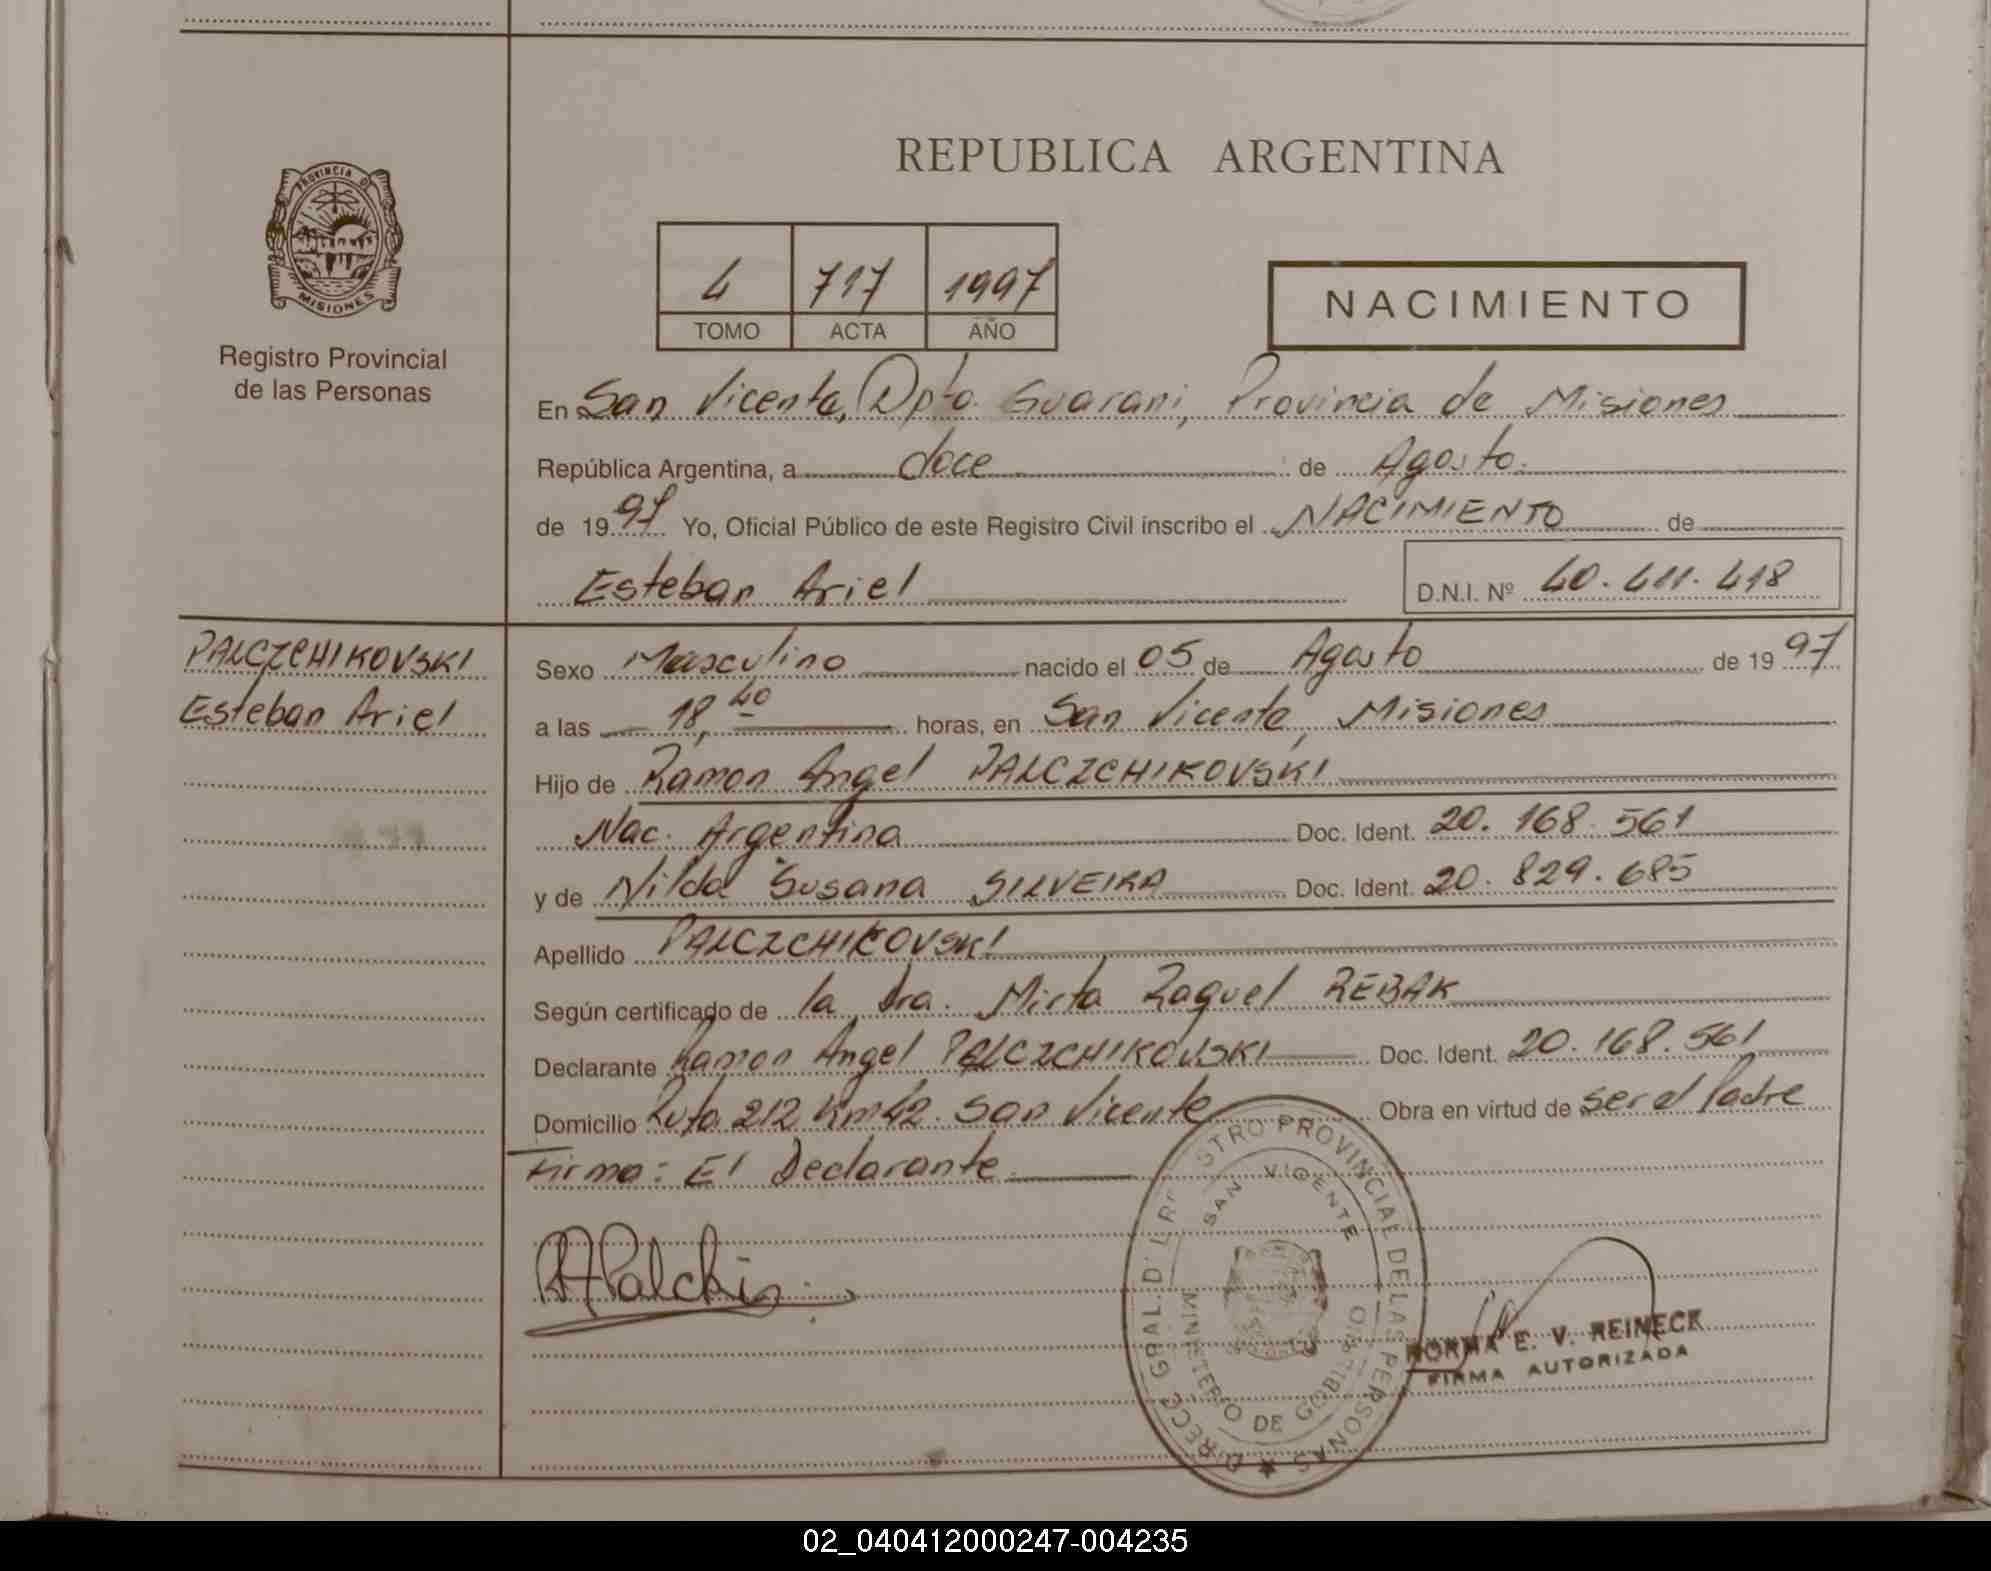 REPUBLICA ARGENTINA
PROVINCIA DE
MISIONES
Registro Provincial
de las Personas
4 717 1997
TOMO ACTA AÑO
NACIMIENTO
En San Vicente, Dpto. Guarani, Provincia de Misiones
República Argentina, a doce de Agosto.
de 1997 Yo, Oficial Público de este Registro Civil inscribo el NACIMIENTO de
Esteban Ariel D.N.I. Nº 40.411.418
PALCZCHIKOVSKI
Esteban Ariel
Sexo Masculino nacido el 05 de Agosto de 1997
a las 18,40 horas, en San Vicente, Misiones
Hijo de Ramon Angel PALCZCHIKOVSKI
Nac. Argentina Doc. Ident. 20.168.561
y de Nilda Susana SILVEIRA Doc. Ident. 20.829.685
Apellido PALCZCHIKOVSKI
Según certificado de la Dra. Mirta Raquel REBAK
Declarante Ramon Angel PALCZCHIKOVSKI Doc. Ident. 20.168.561
Domicilio Ruta 212 Km 42. San Vicente Obra en virtud de ser el Padre
Firma: El Declarante
RAPalchi
SAN VICENTE
MINISTERIO DE GOBIERNO
PROVINCIAL DE LAS PERSONAS
NORMA E. V. REINECK
FIRMA AUTORIZADA
02_040412000247-004235